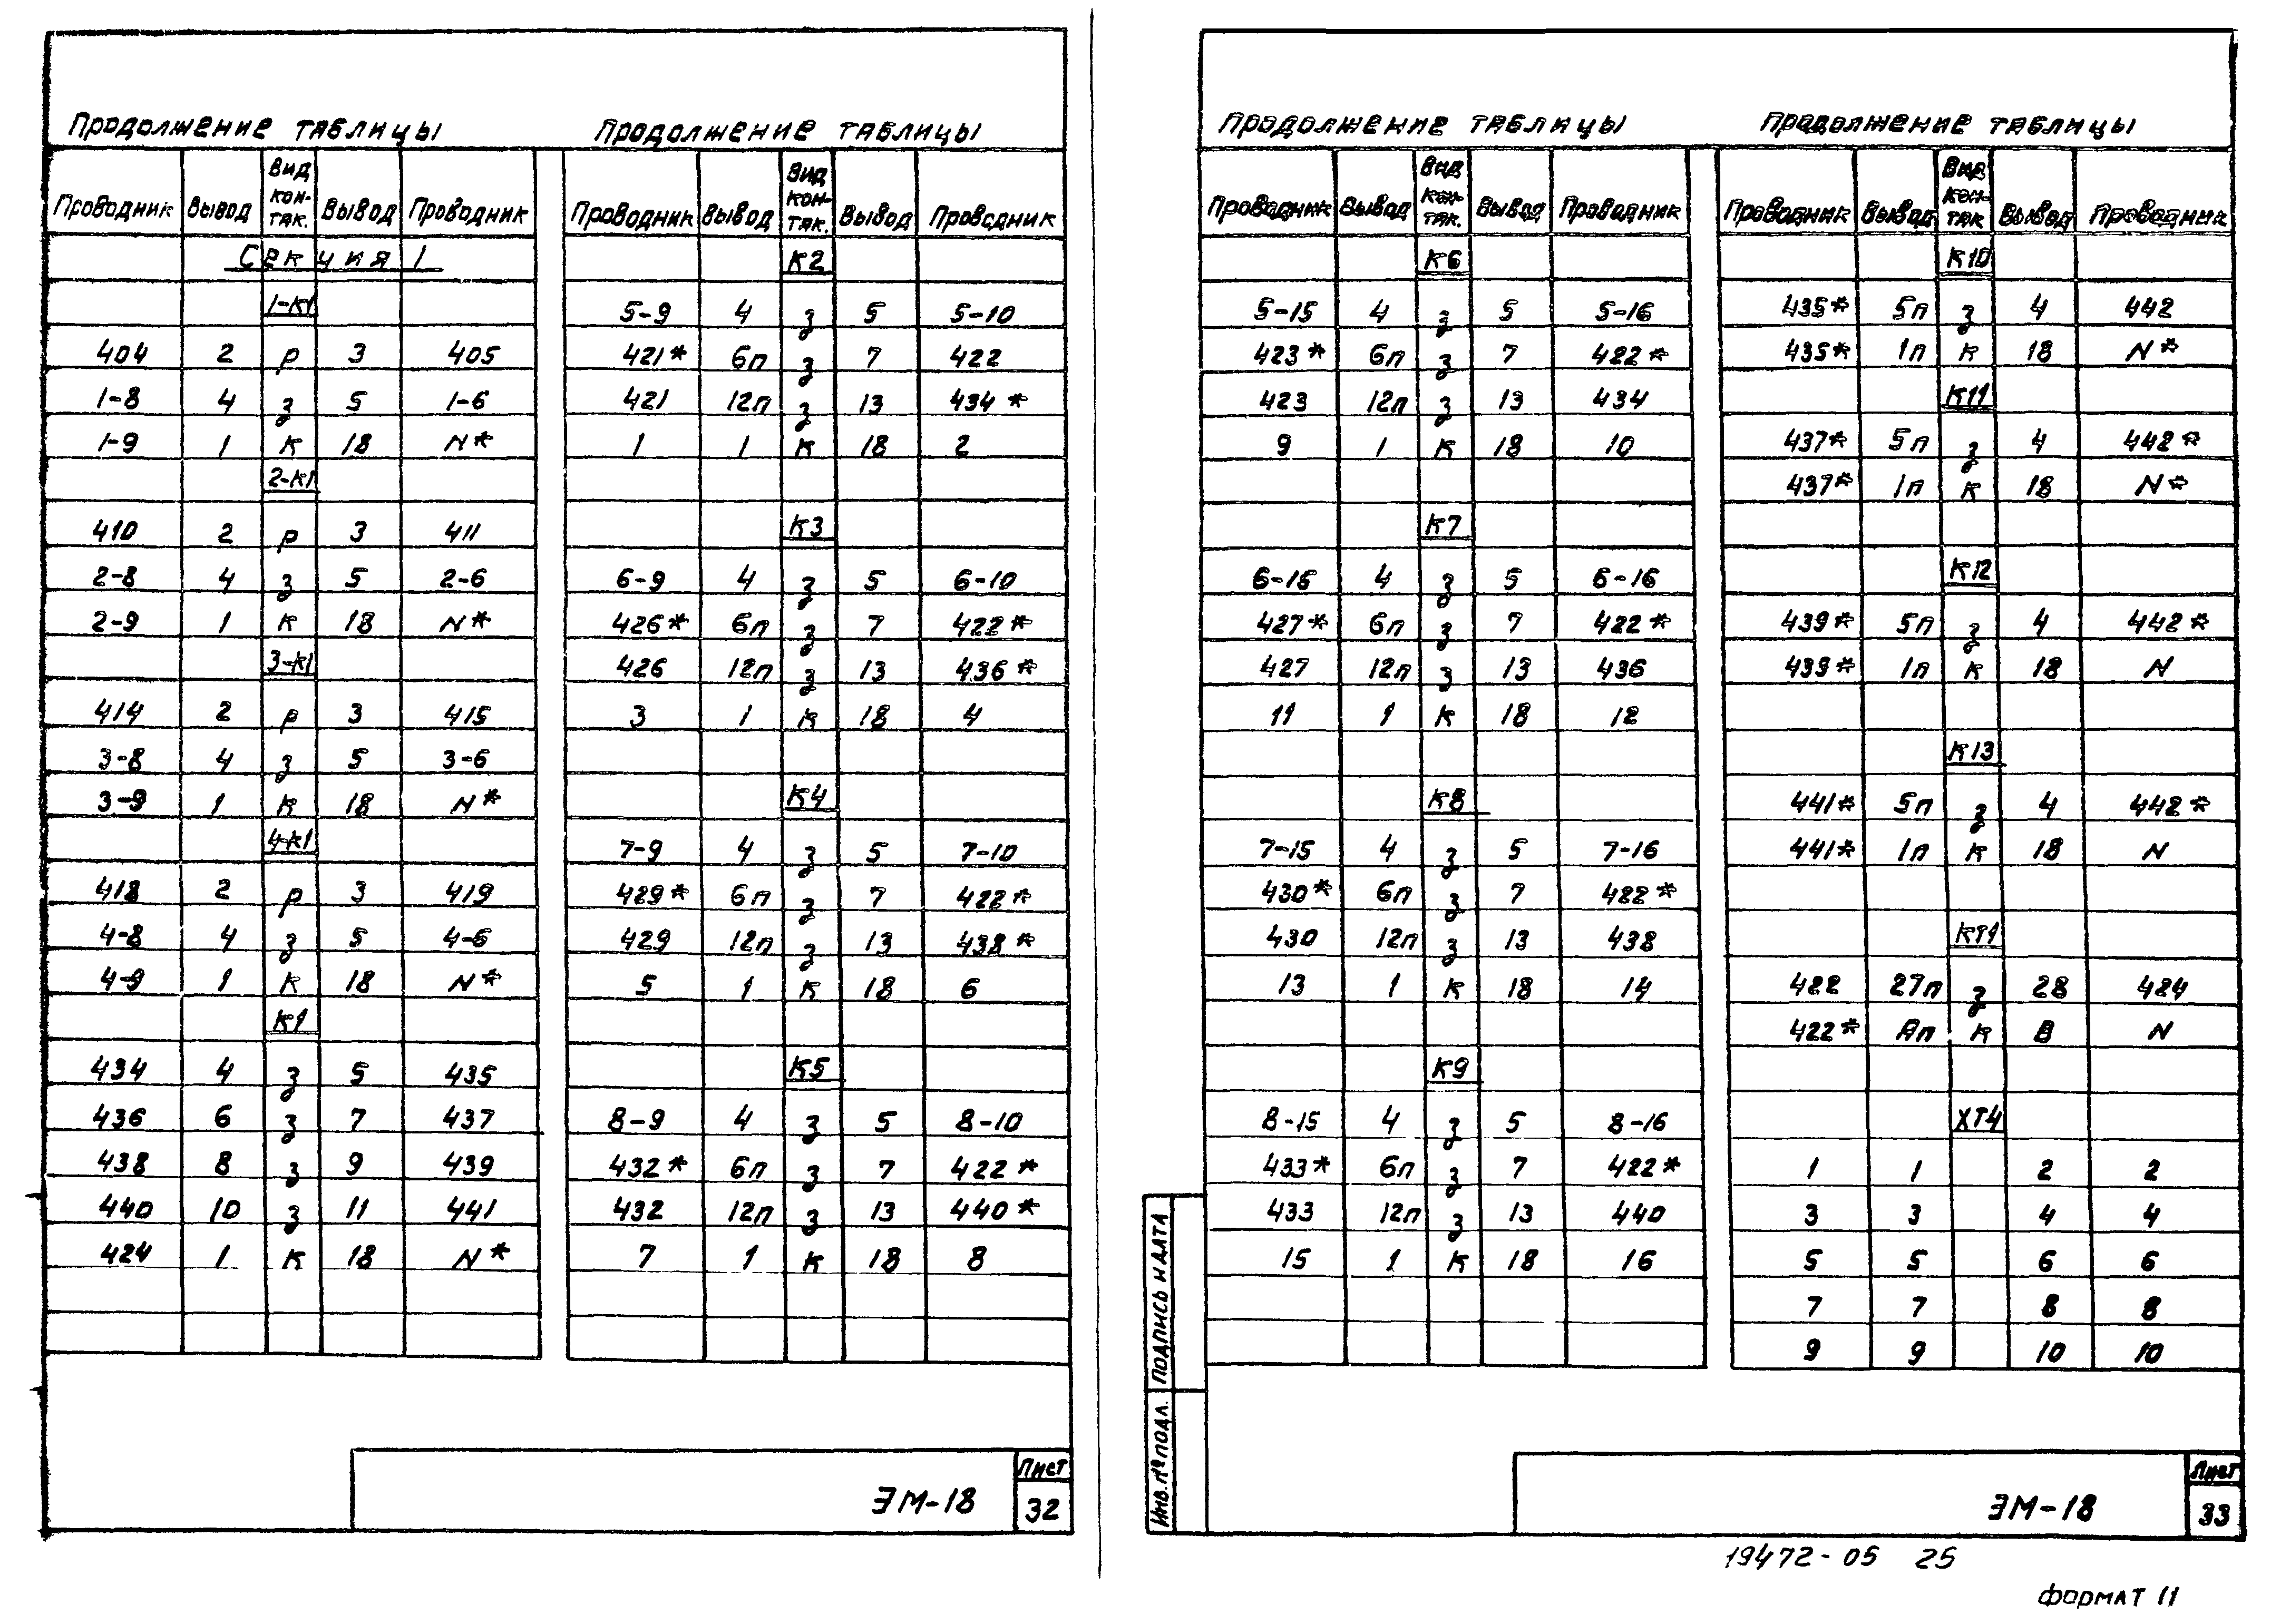 Продолжение таблицы
Проводник Вывод Вид кон-так. Вывод Проводник
Секция 1
1-К1
404 2 р 3 405
1-8 4 з 5 1-6
1-9 1 к 18 N*
2-К1
410 2 р 3 411
2-8 4 з 5 2-6
2-9 1 к 18 N*
3-К1
414 2 р 3 415
3-8 4 з 5 3-6
3-9 1 к 18 N*
4-К1
418 2 р 3 419
4-8 4 з 5 4-6
4-9 1 к 18 N*
К1
434 4 з 5 435
436 6 з 7 437
438 8 з 9 439
440 10 з 11 441
424 1 к 18 N*
Продолжение таблицы
Проводник Вывод Вид кон-так. Вывод Проводник
К2
5-9 4 з 5 5-10
421* 6п з 7 422
421 12п з 13 434*
1 1 к 18 2
К3
6-9 4 з 5 6-10
426* 6п з 7 422*
426 12п з 13 436*
3 1 к 18 4
К4
7-9 4 з 5 7-10
429* 6п з 7 422*
429 12п з 13 438*
5 1 к 18 6
К5
8-9 4 з 5 8-10
432* 6п з 7 422*
432 12п з 13 440*
7 1 к 18 8
ЭМ-18
Лист
32
Продолжение таблицы
Проводник Вывод Вид кон-так. Вывод Проводник
К6
5-15 4 з 5 5-16
423* 6п з 7 422*
423 12п з 13 434
9 1 к 18 10
К7
6-15 4 з 5 6-16
427* 6п з 7 422*
427 12п з 13 436
11 1 к 18 12
К8
7-15 4 з 5 7-16
430* 6п з 7 422*
430 12п з 13 438
13 1 к 18 14
К9
8-15 4 з 5 8-16
433* 6п з 7 422*
433 12п з 13 440
15 1 к 18 16
Продолжение таблицы
Проводник Вывод Вид кон-так Вывод Проводник
К10
435* 5п з 4 442
435* 1п к 18 N*
К11
437* 5п з 4 442*
437* 1п к 18 N*
К12
439* 5п з 4 442*
439* 1п к 18 N
К13
441* 5п з 4 442*
441* 1п к 18 N
КТ1
422 27п з 28 424
422* Ап к В N
ХТ4
1 1 2 2
3 3 4 4
5 5 6 6
7 7 8 8
9 9 10 10
Инв. № подл. Подпись и дата
ЭМ-18
Лист
33
19472-05 25
Формат 11